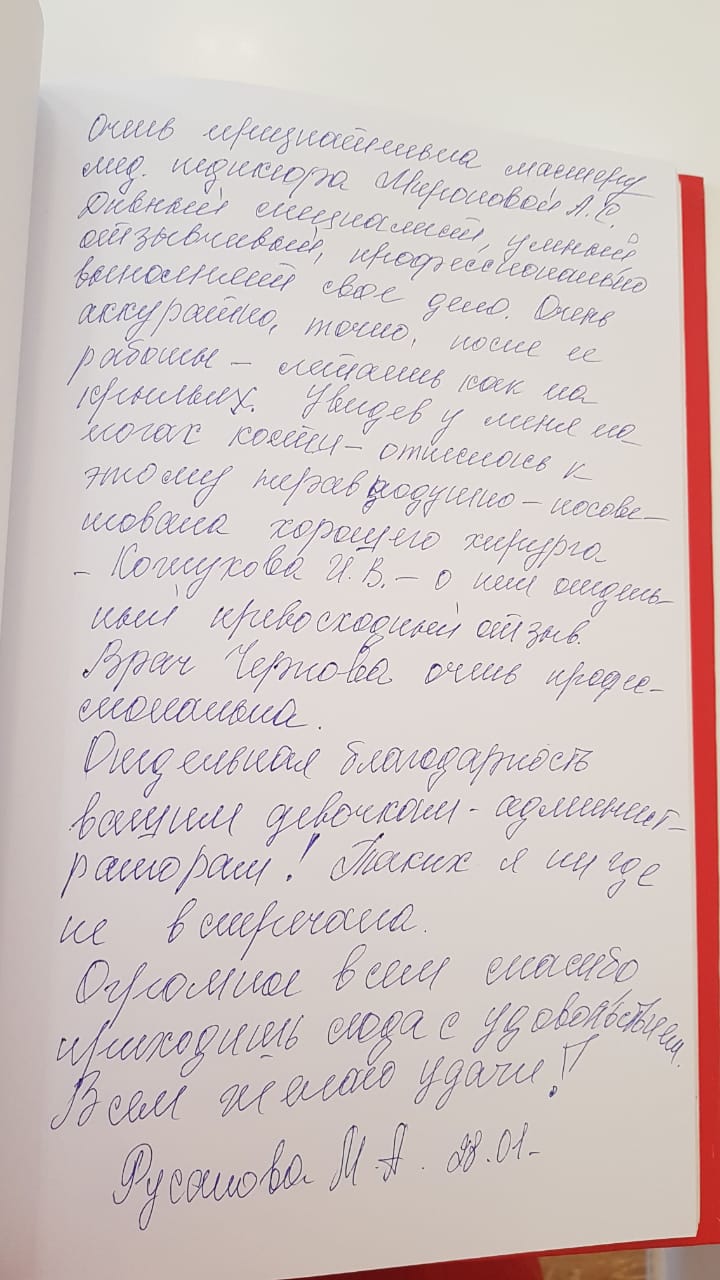 Очень признательна мастеру
мед. педикюра Мироновой А.С.
Дивный специалист, умный
отзывчивый, профессионально
выполняет свое дело. Очень
аккуратно, точно, после ее
работы – летаешь как на
крыльях. Увидев у меня на
ногах кости – отнеслась к
этому неравнодушно – посове-
товала хорошего хирурга
– Кожухова И.В. – о нем отдель-
ный превосходный отзыв.
Врач Чернова очень профес-
сиональна.
Отдельная благодарность
вашим девочкам - админист-
раторам! Таких я нигде
не встречала.
Огромное всем спасибо,
приходишь сюда с удовольствием.
Всем желаю удачи!
Русанова М.А. 28.01-